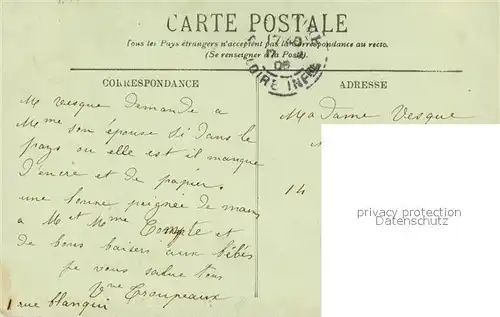 CARTE POSTALE
Tous les Pays étrangers n'acceptent pas la Correspondance au recto.
(Se renseigner à la Poste).
CORRESPONDANCE
ADRESSE
LOIRE INFRE
M Vesque demande a
Mme son épouse si dans le
pays ou elle est il manque
d'encre et de papier,
une bonne poignée de mains
a M et Mme Compte et
de bons baisers aux bébés
je vous salue tous
Vve Croupeaux
1 rue blanqui
Madame Vesque
14
privacy protection
Datenschutz